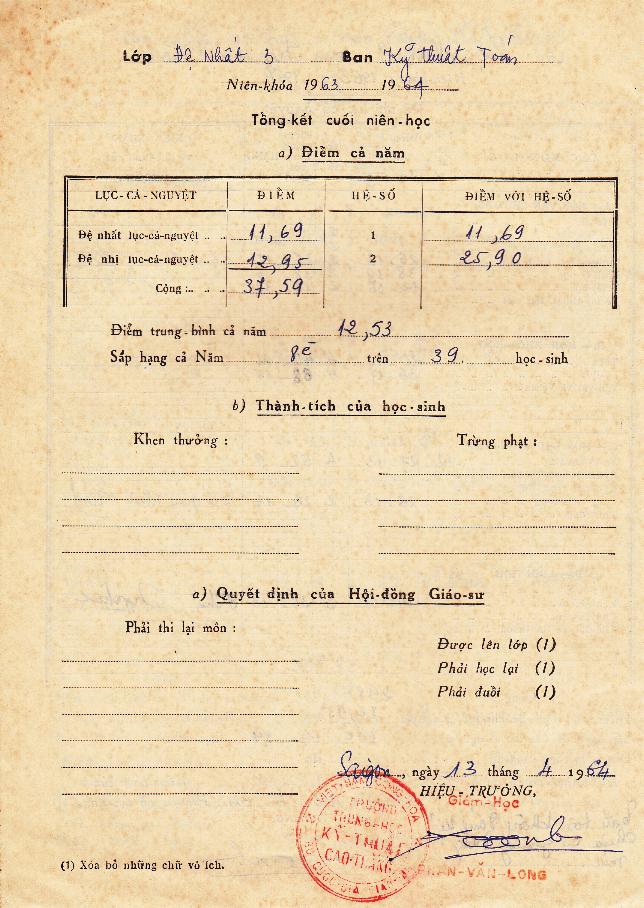 Lớp Đệ Nhất 3 Ban Kỹ thuật Toán
Niên-khóa 1963 1964
Tổng-kết cuối niên-học
a) Điểm cả năm
LỤC-CÁ-NGUYỆT ĐIỂM HỆ-SỐ ĐIỂM VỚI HỆ-SỐ
Đệ nhất lục-cá-nguyệt 11,69 1 11,69
Đệ nhị lục-cá-nguyệt 12,95 2 25,90
Cộng : 37,59
Điểm trung-bình cả năm 12,53
Sắp hạng cả Năm 8è trên 39 học-sinh
b) Thành-tích của học-sinh
Khen thưởng : Trừng phạt :
a) Quyết định của Hội-đồng Giáo-sư
Phải thi lại môn :
Được lên lớp (1)
Phải học lại (1)
Phải đuổi (1)
Saigon, ngày 13 tháng 4 1964
HIỆU-TRƯỞNG,
Giám-Học
VIỆT-NAM CỘNG-HÒA
TRƯỜNG
TRUNG-HỌC
KỸ-THUẬT
CAO-THẮNG
VĂN-LONG
(1) Xóa bỏ những chữ vô ích.